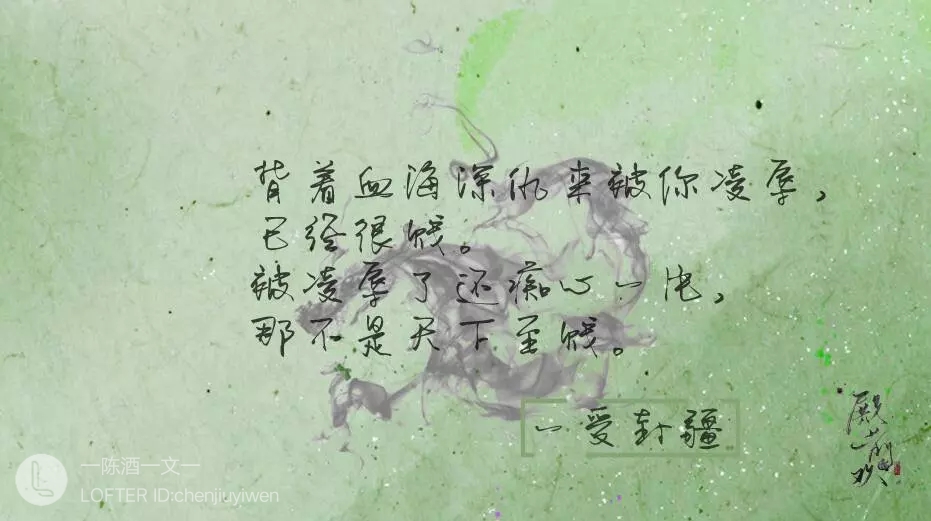 背着血海深仇来被你凌辱，
已经很贱。
被凌辱了还痴心一片，
那不是天下至贱。
一爱封疆
殿前欢
一陈酒一文一
LOFTER ID:chenjiuyiwen